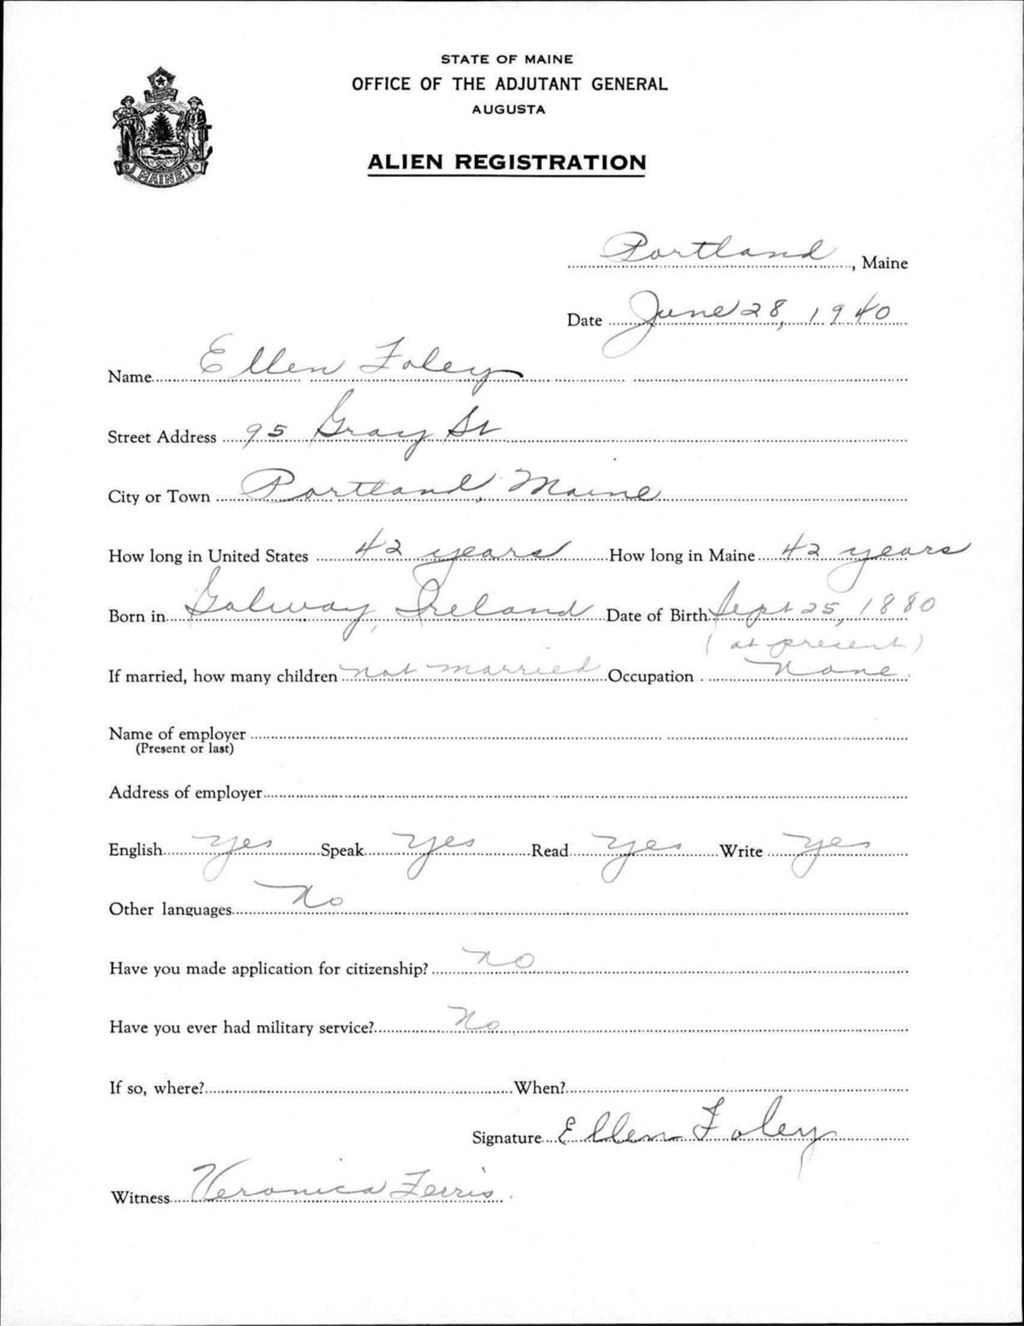 STATE OF MAINE
OFFICE OF THE ADJUTANT GENERAL
AUGUSTA
ALIEN REGISTRATION
MAINE
Portland, Maine
Date June 28, 1940
Name Ellen Foley
Street Address 95 Gray St
City or Town Portland, Maine
How long in United States 42 years How long in Maine 42 years
Born in Galway, Ireland Date of Birth Sept 25, 1880
(at present)
If married, how many children not married Occupation None
Name of employer
(Present or last)
Address of employer
English yes Speak yes Read yes Write yes
Other languages No
Have you made application for citizenship? no
Have you ever had military service? No
If so, where? When?
Signature Ellen Foley
Witness Veronica Ferris